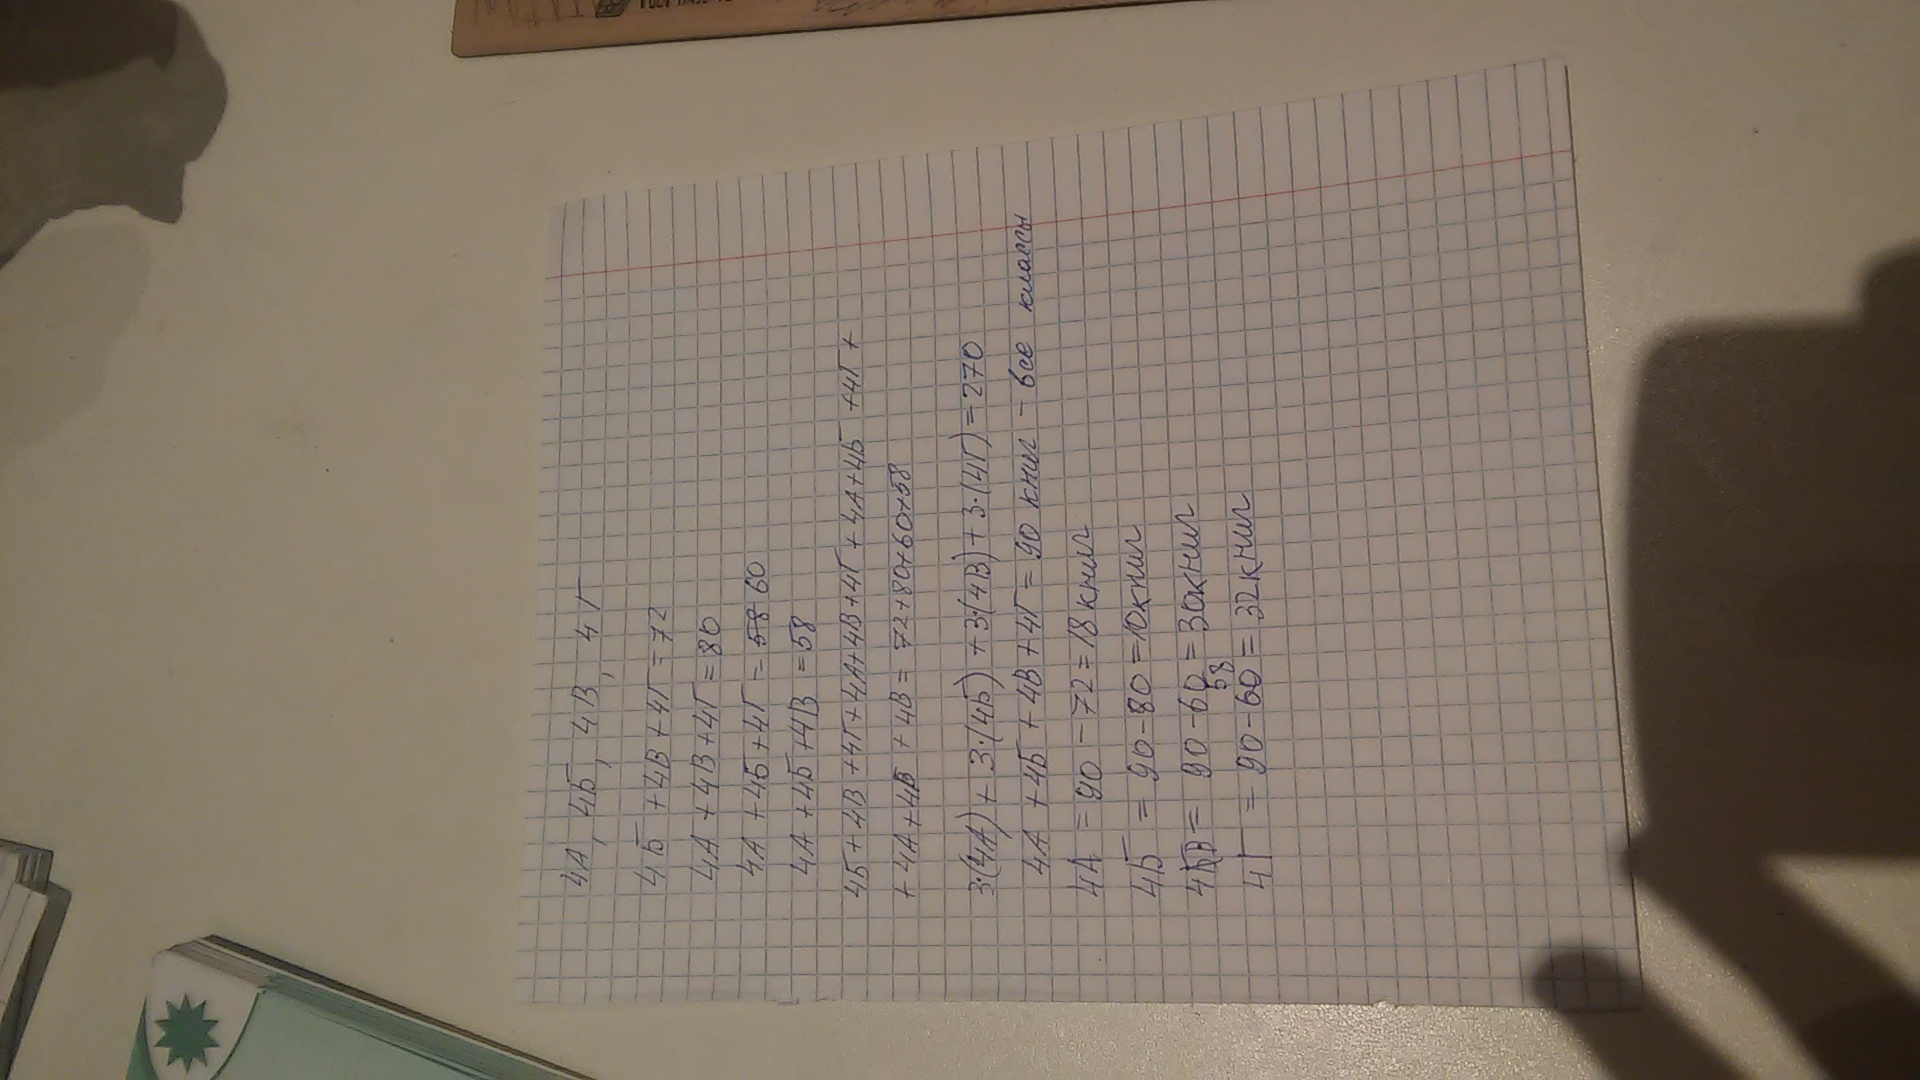 4А, 4Б, 4В, 4Г
4Б + 4В + 4Г = 72
4А + 4В + 4Г = 80
4А + 4Б + 4Г = 58 60
4А + 4Б + 4В = 58
4Б + 4В + 4Г + 4А + 4В + 4Г + 4А + 4Б + 4Г +
+ 4А + 4Б + 4В = 72 + 80 + 60 + 58
3·(4А) + 3·(4Б) + 3·(4В) + 3·(4Г) = 270
4А + 4Б + 4В + 4Г = 90 книг - все классы
4А = 90 - 72 = 18 книг
4Б = 90 - 80 = 10 книг
4В = 90 - 60 = 30 книг
58
4Г = 90 - 60 = 32 книг